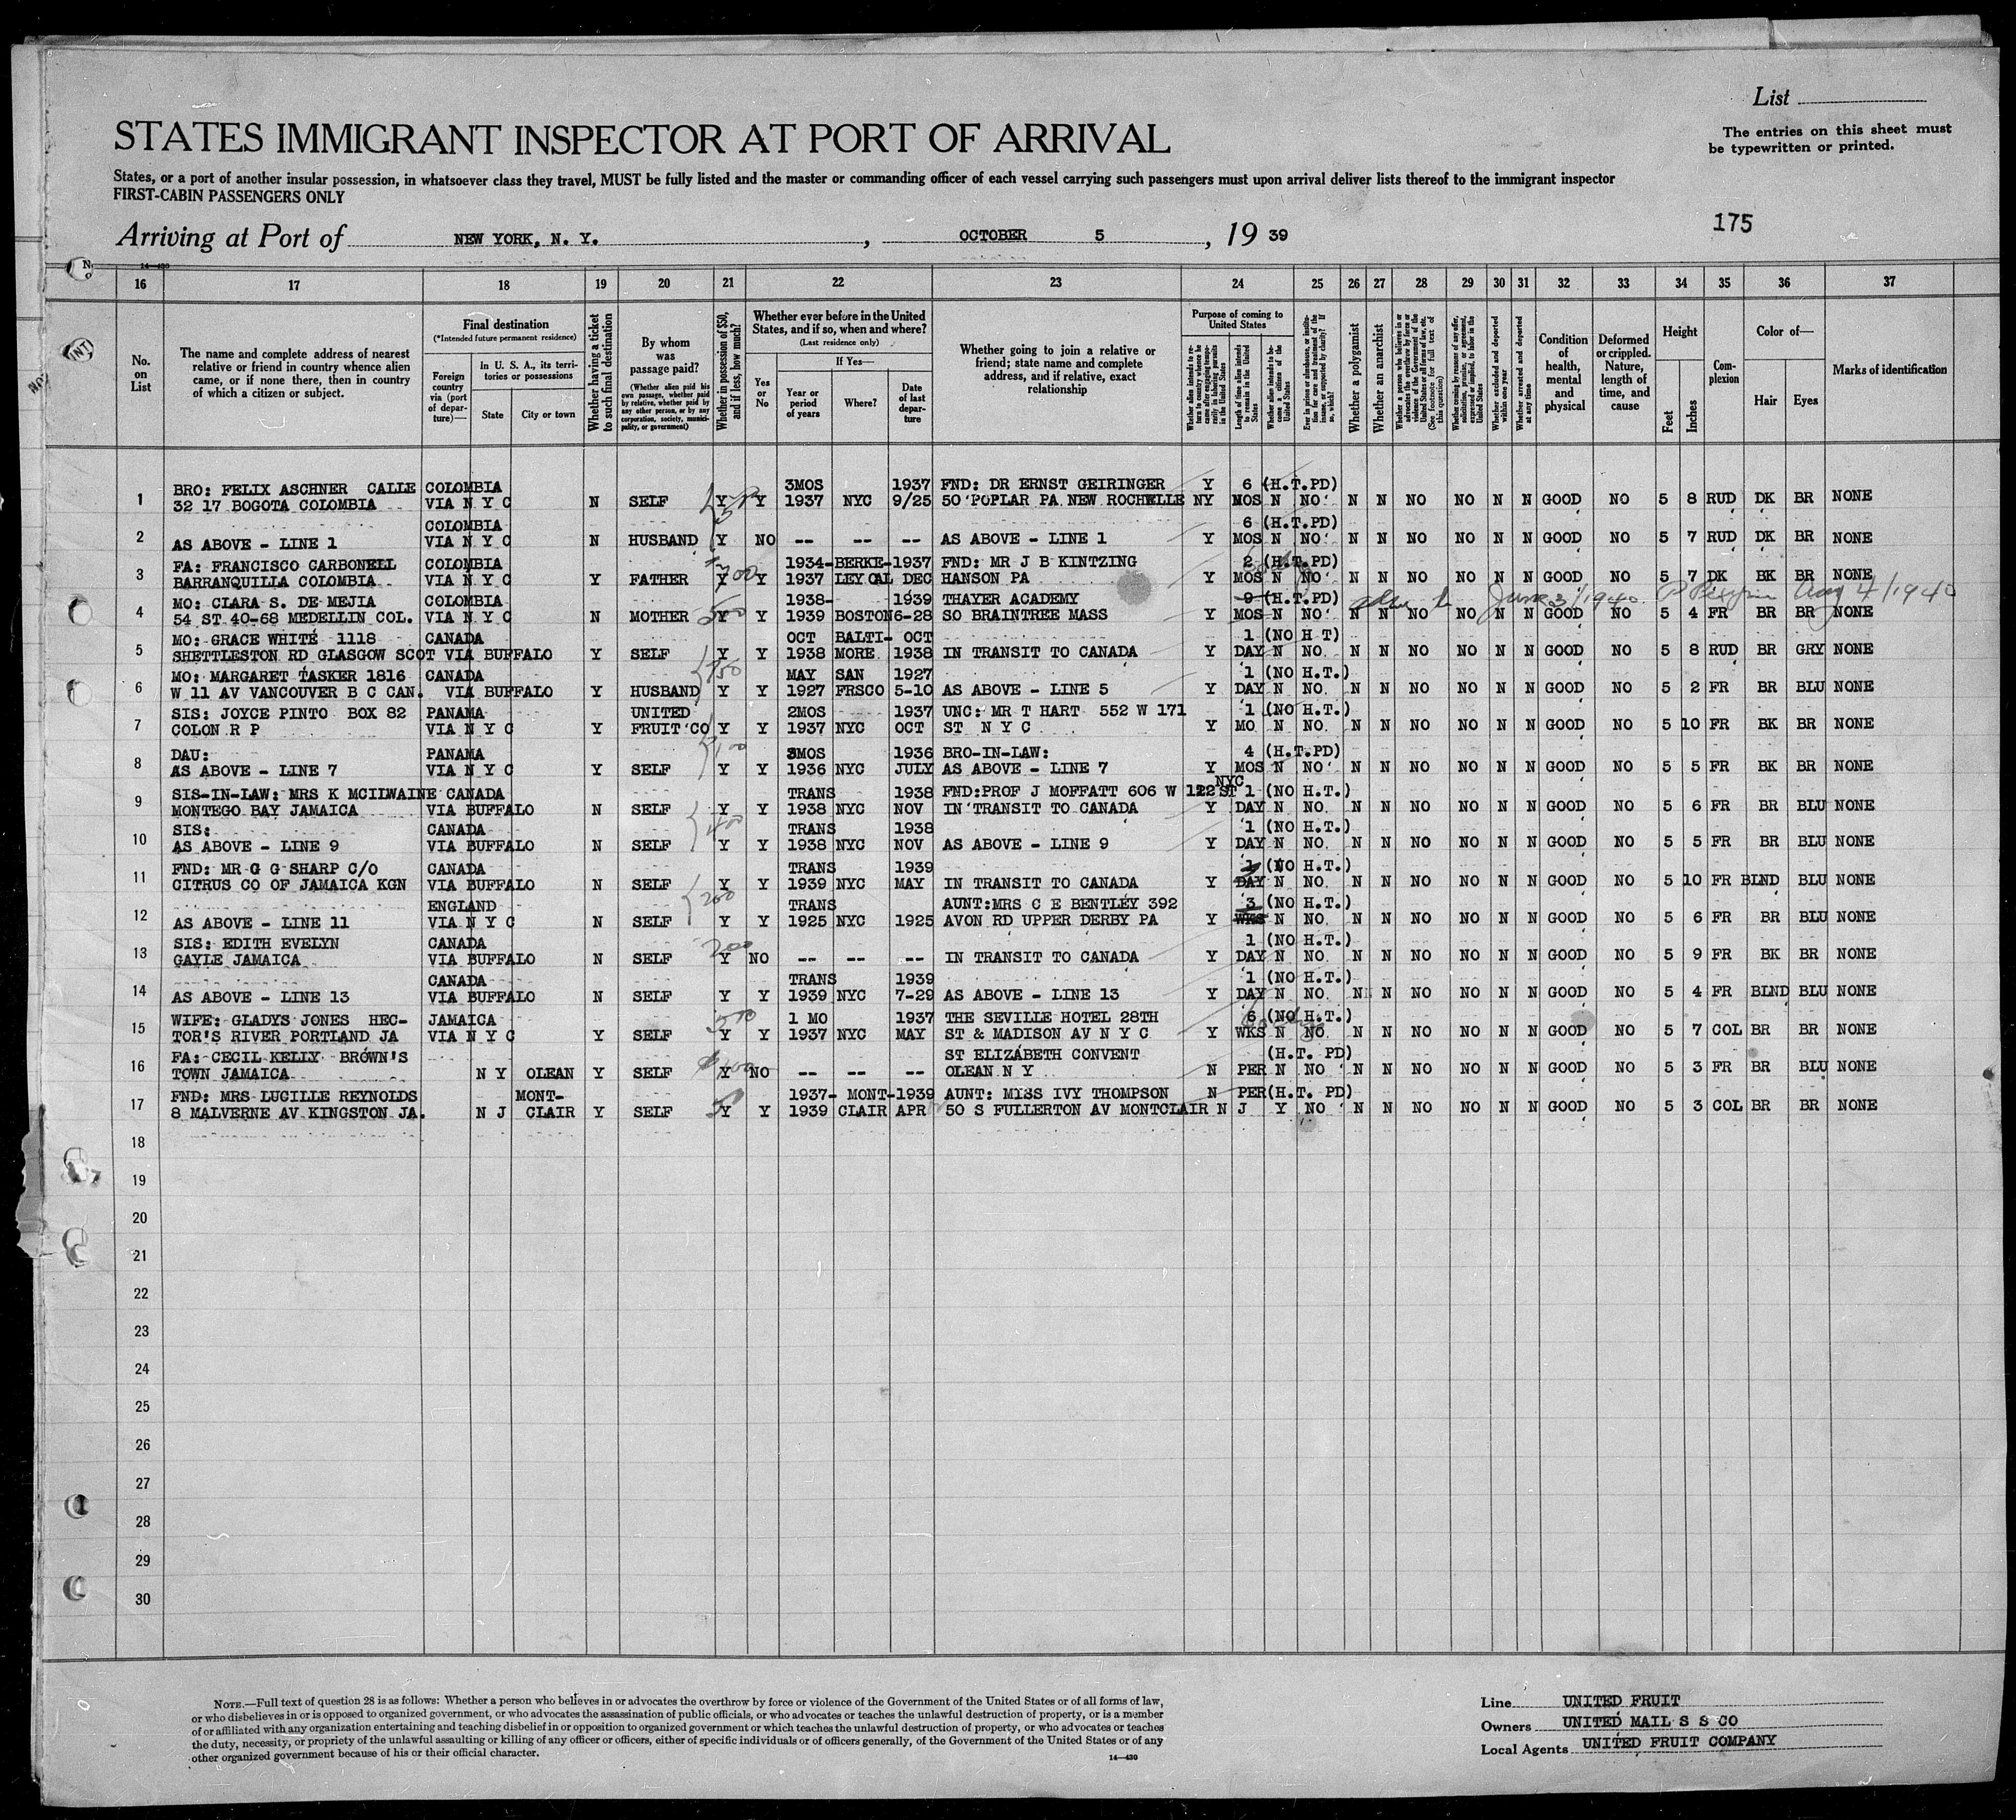 List
STATES IMMIGRANT INSPECTOR AT PORT OF ARRIVAL
The entries on this sheet must
be typewritten or printed.
States, or a port of another insular possession, in whatsoever class they travel, MUST be fully listed and the master or commanding officer of each vessel carrying such passengers must upon arrival deliver lists thereof to the immigrant inspector
FIRST-CABIN PASSENGERS ONLY
175
Arriving at Port of NEW YORK, N. Y., OCTOBER 5, 19 39
14—430
16 17 18 19 20 21 22 23 24 25 26 27 28 29 30 31 32 33 34 35 36 37
No. on List
The name and complete address of nearest relative or friend in country whence alien came, or if none there, then in country of which a citizen or subject.
Final destination
(*Intended future permanent residence)
Foreign country via (port of departure)—
In U. S. A., its territories or possessions
State
City or town
Whether having a ticket to such final destination
By whom was passage paid?
(Whether alien paid his own passage, whether paid by relative, whether paid by any other person, or by any corporation, society, municipality, or government)
Whether in possession of $50, and if less, how much?
Whether ever before in the United States, and if so, when and where?
(Last residence only)
Yes or No
If Yes—
Year or period of years
Where?
Date of last departure
Whether going to join a relative or friend; state name and complete address, and if relative, exact relationship
Purpose of coming to United States
Whether alien intends to return to country whence he came after engaging temporarily in laboring pursuits in the United States
Length of time alien intends to remain in the United States
Whether alien intends to become a citizen of the United States
Ever in prison or almshouse, or institution for care and treatment of the insane, or supported by charity? If so, which?
Whether a polygamist
Whether an anarchist
Whether a person who believes in or advocates the overthrow by force or violence of the Government of the United States or all forms of law, etc. (See footnote for full text of this question)
Whether coming by reason of any offer, solicitation, promise, or agreement, expressed or implied, to labor in the United States
Whether excluded and deported within one year
Whether arrested and deported at any time
Condition of health, mental and physical
Deformed or crippled. Nature, length of time, and cause
Height
Feet
Inches
Complexion
Color of—
Hair
Eyes
Marks of identification
BRO: FELIX ASCHNER CALLE COLOMBIA 3MOS 1937 FND: DR ERNST GEIRINGER Y 6 (H.T.PD)
1 32 17 BOGOTA COLOMBIA VIA N Y C N SELF Y Y 1937 NYC 9/25 50 POPLAR PA NEW ROCHELLE NY MOS N NO N N NO NO N N GOOD NO 5 8 RUD DK BR NONE
COLOMBIA 6 (H.T.PD)
2 AS ABOVE - LINE 1 VIA N Y C N HUSBAND Y NO -- -- -- AS ABOVE - LINE 1 Y MOS N NO N N NO NO N N GOOD NO 5 7 RUD DK BR NONE
FA: FRANCISCO CARBONELL COLOMBIA 1934- BERKE- 1937 FND: MR J B KINTZING 2 (H.T.PD)
3 BARRANQUILLA COLOMBIA VIA N Y C Y FATHER Y Y 1937 LEY CAL DEC HANSON PA Y MOS N NO N N NO NO N N GOOD NO 5 7 DK BK BR NONE
MO: CLARA S. DE MEJIA COLOMBIA 1938- 1939 THAYER ACADEMY 9 (H.T.PD) June 3/1940 Aug 4/1940
4 54 ST 40-68 MEDELLIN COL. VIA N Y C N MOTHER 500 Y Y 1939 BOSTON 6-28 SO BRAINTREE MASS Y MOS N NO N N NO NO N N GOOD NO 5 4 FR BR BR NONE
MO: GRACE WHITE 1118 CANADA OCT BALTI- OCT 1 (NO H T)
5 SHETTLESTON RD GLASGOW SCOT VIA BUFFALO Y SELF Y Y 1938 MORE 1938 IN TRANSIT TO CANADA Y DAY N NO N N NO NO N N GOOD NO 5 8 RUD BR GRY NONE
MO: MARGARET TASKER 1816 CANADA MAY SAN 1927 1 (NO H.T.)
6 W 11 AV VANCOUVER B C CAN. VIA BUFFALO Y HUSBAND Y Y 1927 FRSCO 5-10 AS ABOVE - LINE 5 Y DAY N NO N N NO NO N N GOOD NO 5 2 FR BR BLU NONE
SIS: JOYCE PINTO BOX 82 PANAMA UNITED 2MOS 1937 UNC: MR T HART 552 W 171 1 (NO H.T.)
7 COLON R P VIA N Y C Y FRUIT CO Y Y 1937 NYC OCT ST N Y C Y MO N NO N N NO NO N N GOOD NO 5 10 FR BK BR NONE
DAU: PANAMA 3MOS 1936 BRO-IN-LAW: 4 (H.T.PD)
8 AS ABOVE - LINE 7 VIA N Y C Y SELF Y Y 1936 NYC JULY AS ABOVE - LINE 7 Y MOS N NO N N NO NO N N GOOD NO 5 5 FR BK BR NONE
NYC
SIS-IN-LAW: MRS K MCILWAINE CANADA TRANS 1938 FND:PROF J MOFFATT 606 W 122 ST 1 (NO H.T.)
9 MONTEGO BAY JAMAICA VIA BUFFALO N SELF Y Y 1938 NYC NOV IN TRANSIT TO CANADA Y DAY N NO N N NO NO N N GOOD NO 5 6 FR BR BLU NONE
SIS: CANADA 400 TRANS 1938 1 (NO H.T.)
10 AS ABOVE - LINE 9 VIA BUFFALO N SELF Y Y 1938 NYC NOV AS ABOVE - LINE 9 Y DAY N NO N N NO NO N N GOOD NO 5 5 FR BR BLU NONE
FND: MR G G SHARP C/O CANADA TRANS 1939 (NO H.T.)
11 CITRUS CO OF JAMAICA KGN VIA BUFFALO N SELF Y Y 1939 NYC MAY IN TRANSIT TO CANADA Y DAY N NO N N NO NO N N GOOD NO 5 10 FR BLND BLU NONE
ENGLAND 200 TRANS AUNT:MRS C E BENTLEY 392 3 (NO H.T.)
12 AS ABOVE - LINE 11 VIA N Y C N SELF Y Y 1925 NYC 1925 AVON RD UPPER DERBY PA Y WKS N NO N N NO NO N N GOOD NO 5 6 FR BR BLU NONE
SIS: EDITH EVELYN CANADA 200 1 (NO H.T.)
13 GAYLE JAMAICA VIA BUFFALO N SELF Y NO -- -- -- IN TRANSIT TO CANADA Y DAY N NO N N NO NO N N GOOD NO 5 9 FR BK BR NONE
CANADA TRANS 1939 1 (NO H.T.)
14 AS ABOVE - LINE 13 VIA BUFFALO N SELF Y Y 1939 NYC 7-29 AS ABOVE - LINE 13 Y DAY N NO N N NO NO N N GOOD NO 5 4 FR BLND BLU NONE
WIFE: GLADYS JONES HEC- JAMAICA 1 MO 1937 THE SEVILLE HOTEL 28TH 6 (NO H.T.)
15 TOR'S RIVER PORTLAND JA VIA N Y C Y SELF Y Y 1937 NYC MAY ST & MADISON AV N Y C Y WKS N NO N N NO NO N N GOOD NO 5 7 COL BR BR NONE
FA: CECIL KELLY BROWN'S ST ELIZABETH CONVENT (H.T. PD)
16 TOWN JAMAICA N Y OLEAN Y SELF Y NO -- -- -- OLEAN N Y N PER N NO N N NO NO N N GOOD NO 5 3 FR BR BLU NONE
FND: MRS LUCILLE REYNOLDS MONT- 1937- MONT- 1939 AUNT: MISS IVY THOMPSON N PER (H.T. PD)
17 8 MALVERNE AV KINGSTON JA. N J CLAIR Y SELF 50 Y Y 1939 CLAIR APR 50 S FULLERTON AV MONTCLAIR N J Y NO N N NO NO N N GOOD NO 5 3 COL BR BR NONE
18
19
20
21
22
23
24
25
26
27
28
29
30
NOTE.—Full text of question 28 is as follows: Whether a person who believes in or advocates the overthrow by force or violence of the Government of the United States or of all forms of law,
or who disbelieves in or is opposed to organized government, or who advocates the assassination of public officials, or who advocates or teaches the unlawful destruction of property, or is a member
of or affiliated with any organization entertaining and teaching disbelief in or opposition to organized government or which teaches the unlawful destruction of property, or who advocates or teaches
the duty, necessity, or propriety of the unlawful assaulting or killing of any officer or officers, either of specific individuals or of officers generally, of the Government of the United States or of any
other organized government because of his or their official character.
14—430
Line UNITED FRUIT
Owners UNITED MAIL S S CO
Local Agents UNITED FRUIT COMPANY